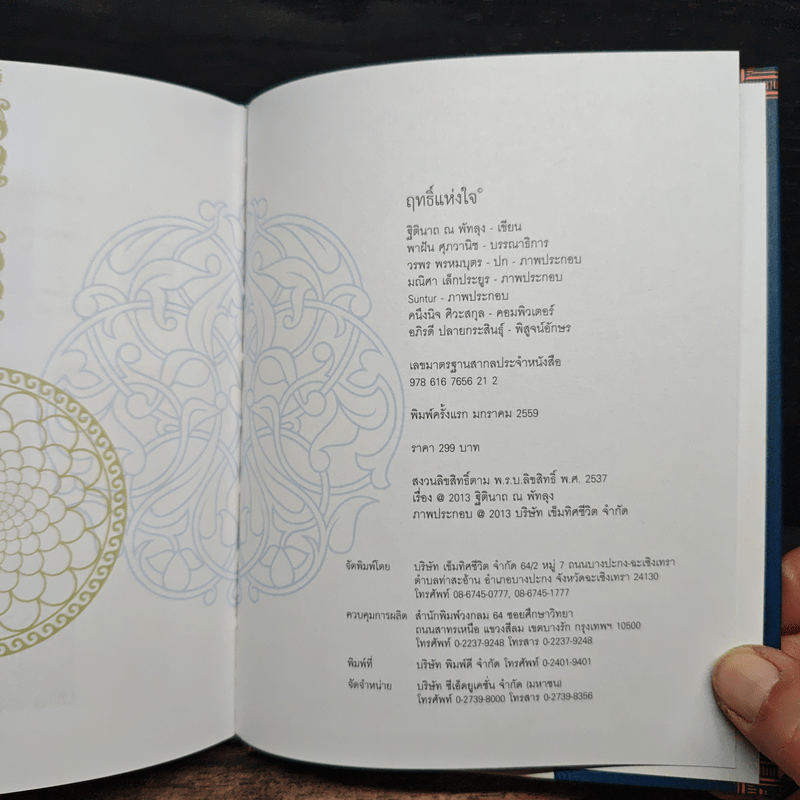 ฤทธิ์แห่งใจ©
ฐิตินาถ ณ พัทลุง - เขียน
พาฝัน ศุภวานิช - บรรณาธิการ
วรพร พรหมบุตร - ปก - ภาพประกอบ
มณิศา เล็กประยูร - ภาพประกอบ
Suntur - ภาพประกอบ
คนึงนิจ ศิวะสกุล - คอมพิวเตอร์
อภิรดี ปลายกระสินธุ์ - พิสูจน์อักษร
เลขมาตรฐานสากลประจำหนังสือ
978 616 7656 21 2
พิมพ์ครั้งแรก มกราคม 2559
ราคา 299 บาท
สงวนลิขสิทธิ์ตาม พ.ร.บ.ลิขสิทธิ์ พ.ศ. 2537
เรื่อง @ 2013 ฐิตินาถ ณ พัทลุง
ภาพประกอบ @ 2013 บริษัท เข็มทิศชีวิต จำกัด
จัดพิมพ์โดย บริษัท เข็มทิศชีวิต จำกัด 64/2 หมู่ 7 ถนนบางปะกง-ฉะเชิงเทรา
ตำบลท่าสะอ้าน อำเภอบางปะกง จังหวัดฉะเชิงเทรา 24130
โทรศัพท์ 08-6745-0777, 08-6745-1777
ควบคุมการผลิต สำนักพิมพ์วงกลม 64 ซอยศึกษาวิทยา
ถนนสาทรเหนือ แขวงสีลม เขตบางรัก กรุงเทพฯ 10500
โทรศัพท์ 0-2237-9248 โทรสาร 0-2237-9248
พิมพ์ที่ บริษัท พิมพ์ดี จำกัด โทรศัพท์ 0-2401-9401
จัดจำหน่าย บริษัท ซีเอ็ดยูเคชั่น จำกัด (มหาชน)
โทรศัพท์ 0-2739-8000 โทรสาร 0-2739-8356